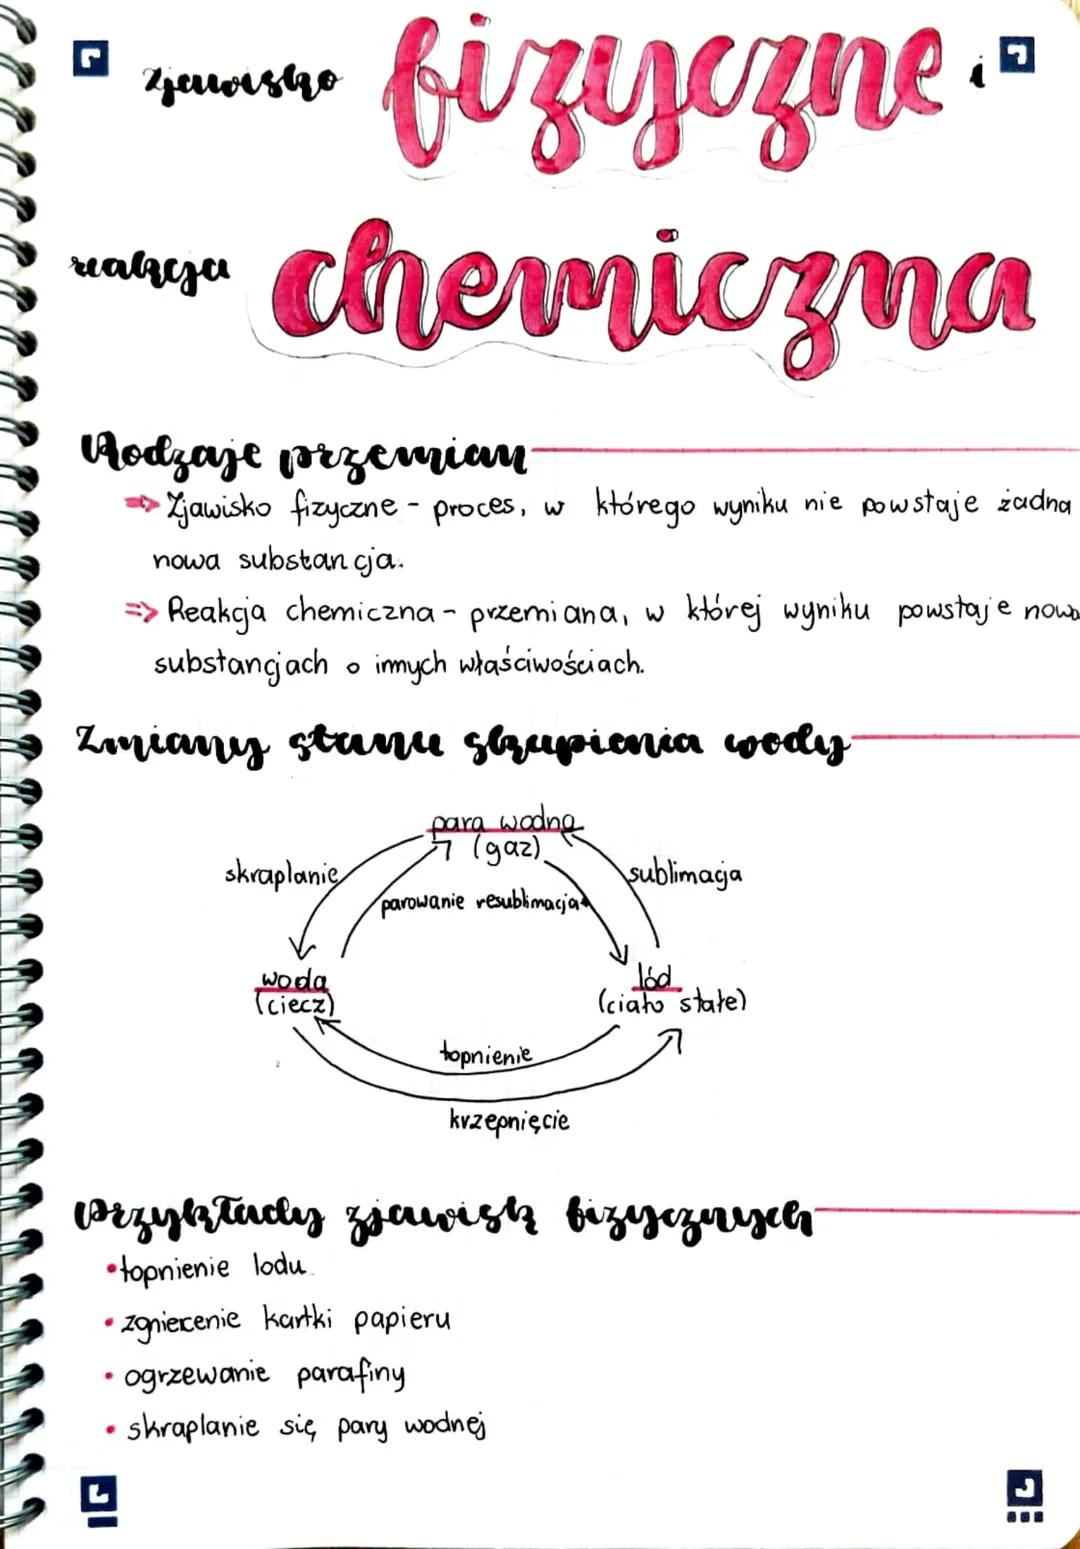 zjawisko fizyczne i
reakcja chemiczna
Rodzaje przemian
=> Zjawisko fizyczne - proces, w którego wyniku nie powstaje żadna
nowa substancja.
=> Reakcja chemiczna - przemiana, w której wyniku powstaje nowa
substancjach o innych właściwościach.
Zmiany stanu skupienia wody
para wodna
(gaz)
skraplanie
sublimacja
parowanie resublimacja
woda
(ciecz)
lód
(ciało stałe)
topnienie
krzepnięcie
Przykłady zjawisk fizycznych
• topnienie lodu
• zgniecenie kartki papieru
• ogrzewanie parafiny
• skraplanie się pary wodnej